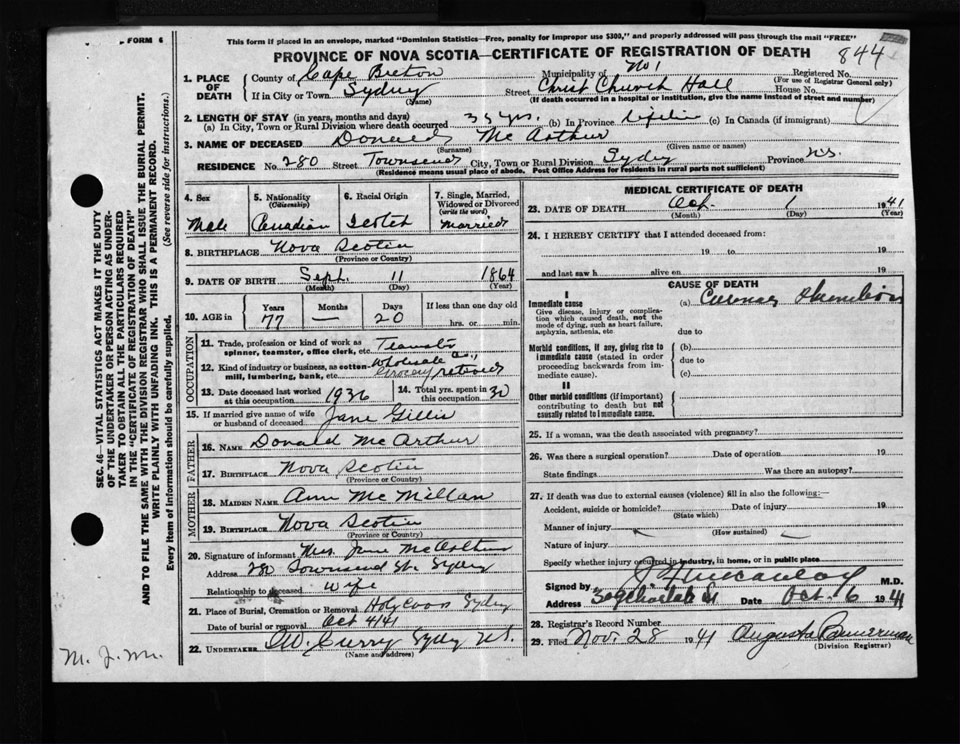 FORM 6
This form if placed in an envelope, marked "Dominion Statistics—Free, penalty for improper use $300," and properly addressed will pass through the mail "FREE"
PROVINCE OF NOVA SCOTIA—CERTIFICATE OF REGISTRATION OF DEATH
844
1. PLACE OF DEATH
County of Cape Breton Municipality of No 1 Registered No.
(For use of Registrar General only)
If in City or Town Sydney (Name) Street Christ Church Hall House No.
(If death occurred in a hospital or institution, give the name instead of street and number)
2. LENGTH OF STAY (in years, months and days)
(a) In City, Town or Rural Division where death occurred 35 yrs. (b) In Province (c) In Canada (if immigrant)
3. NAME OF DECEASED Donald Mc Arthur
(Surname) (Given name or names)
RESIDENCE No. 280 Street Townsend City, Town or Rural Division Sydney Province N.S.
(Residence means usual place of abode. Post Office Address for residents in rural parts not sufficient)
4. Sex Male
5. Nationality (Citizenship) Canadian
6. Racial Origin Scotch
7. Single, Married, Widowed or Divorced (write the word) Married
8. BIRTHPLACE Nova Scotia
(Province or Country)
9. DATE OF BIRTH Sept. 11 1864
(Month) (Day) (Year)
10. AGE in Years 77 Months — Days 20 If less than one day old hrs. or min.
OCCUPATION
11. Trade, profession or kind of work as spinner, teamster, office clerk, etc. Teamster
12. Kind of industry or business, as cotton-mill, lumbering, bank, etc. Wholesale Grocery retired
13. Date deceased last worked at this occupation 1936
14. Total yrs. spent in this occupation 30
15. If married give name of wife or husband of deceased Jane Gillis
FATHER
16. NAME Donald Mc Arthur
17. BIRTHPLACE Nova Scotia
(Province or Country)
MOTHER
18. MAIDEN NAME Ann Mc Millan
19. BIRTHPLACE Nova Scotia
(Province or Country)
20. Signature of informant Mrs. Jane McArthur
Address 280 Townsend St. Sydney
Relationship to deceased wife
21. Place of Burial, Cremation or Removal Holy Cross Sydney
Date of burial or removal Oct 4/41
22. UNDERTAKER W. Curry Sydney N.S.
(Name and address)
MEDICAL CERTIFICATE OF DEATH
23. DATE OF DEATH Oct. 1 1941
(Month) (Day) (Year)
24. I HEREBY CERTIFY that I attended deceased from:
19 to 19
and last saw h alive on 19
CAUSE OF DEATH
I
Immediate cause (a) Coronary Thrombosis
Give disease, injury or complication which caused death, not the mode of dying, such as heart failure, asphyxia, asthenia, etc.
due to
Morbid conditions, if any, giving rise to immediate cause (stated in order proceeding backwards from immediate cause).
(b)
due to
(c)
II
Other morbid conditions (if important) contributing to death but not causally related to immediate cause.
25. If a woman, was the death associated with pregnancy?
26. Was there a surgical operation? Date of operation 19
State findings Was there an autopsy?
27. If death was due to external causes (violence) fill in also the following:—
Accident, suicide or homicide? Date of injury 19
(State which)
Manner of injury
(How sustained)
Nature of injury
Specify whether injury occurred in industry, in home, or in public place
Signed by M.D.
Address Date Oct. 6 1941
28. Registrar's Record Number
29. Filed Nov. 28 1941 Augusta Bannerman
(Division Registrar)
SEC. 46—VITAL STATISTICS ACT MAKES IT THE DUTY
OF THE UNDERTAKER OR PERSON ACTING AS UNDER-
TAKER TO OBTAIN ALL THE PARTICULARS REQUIRED
IN THE "CERTIFICATE OF REGISTRATION OF DEATH"
AND TO FILE THE SAME WITH THE DIVISION REGISTRAR WHO SHALL ISSUE THE BURIAL PERMIT.
WRITE PLAINLY WITH UNFADING INK. THIS IS A PERMANENT RECORD.
Every item of information should be carefully supplied. (See reverse side for instructions.)